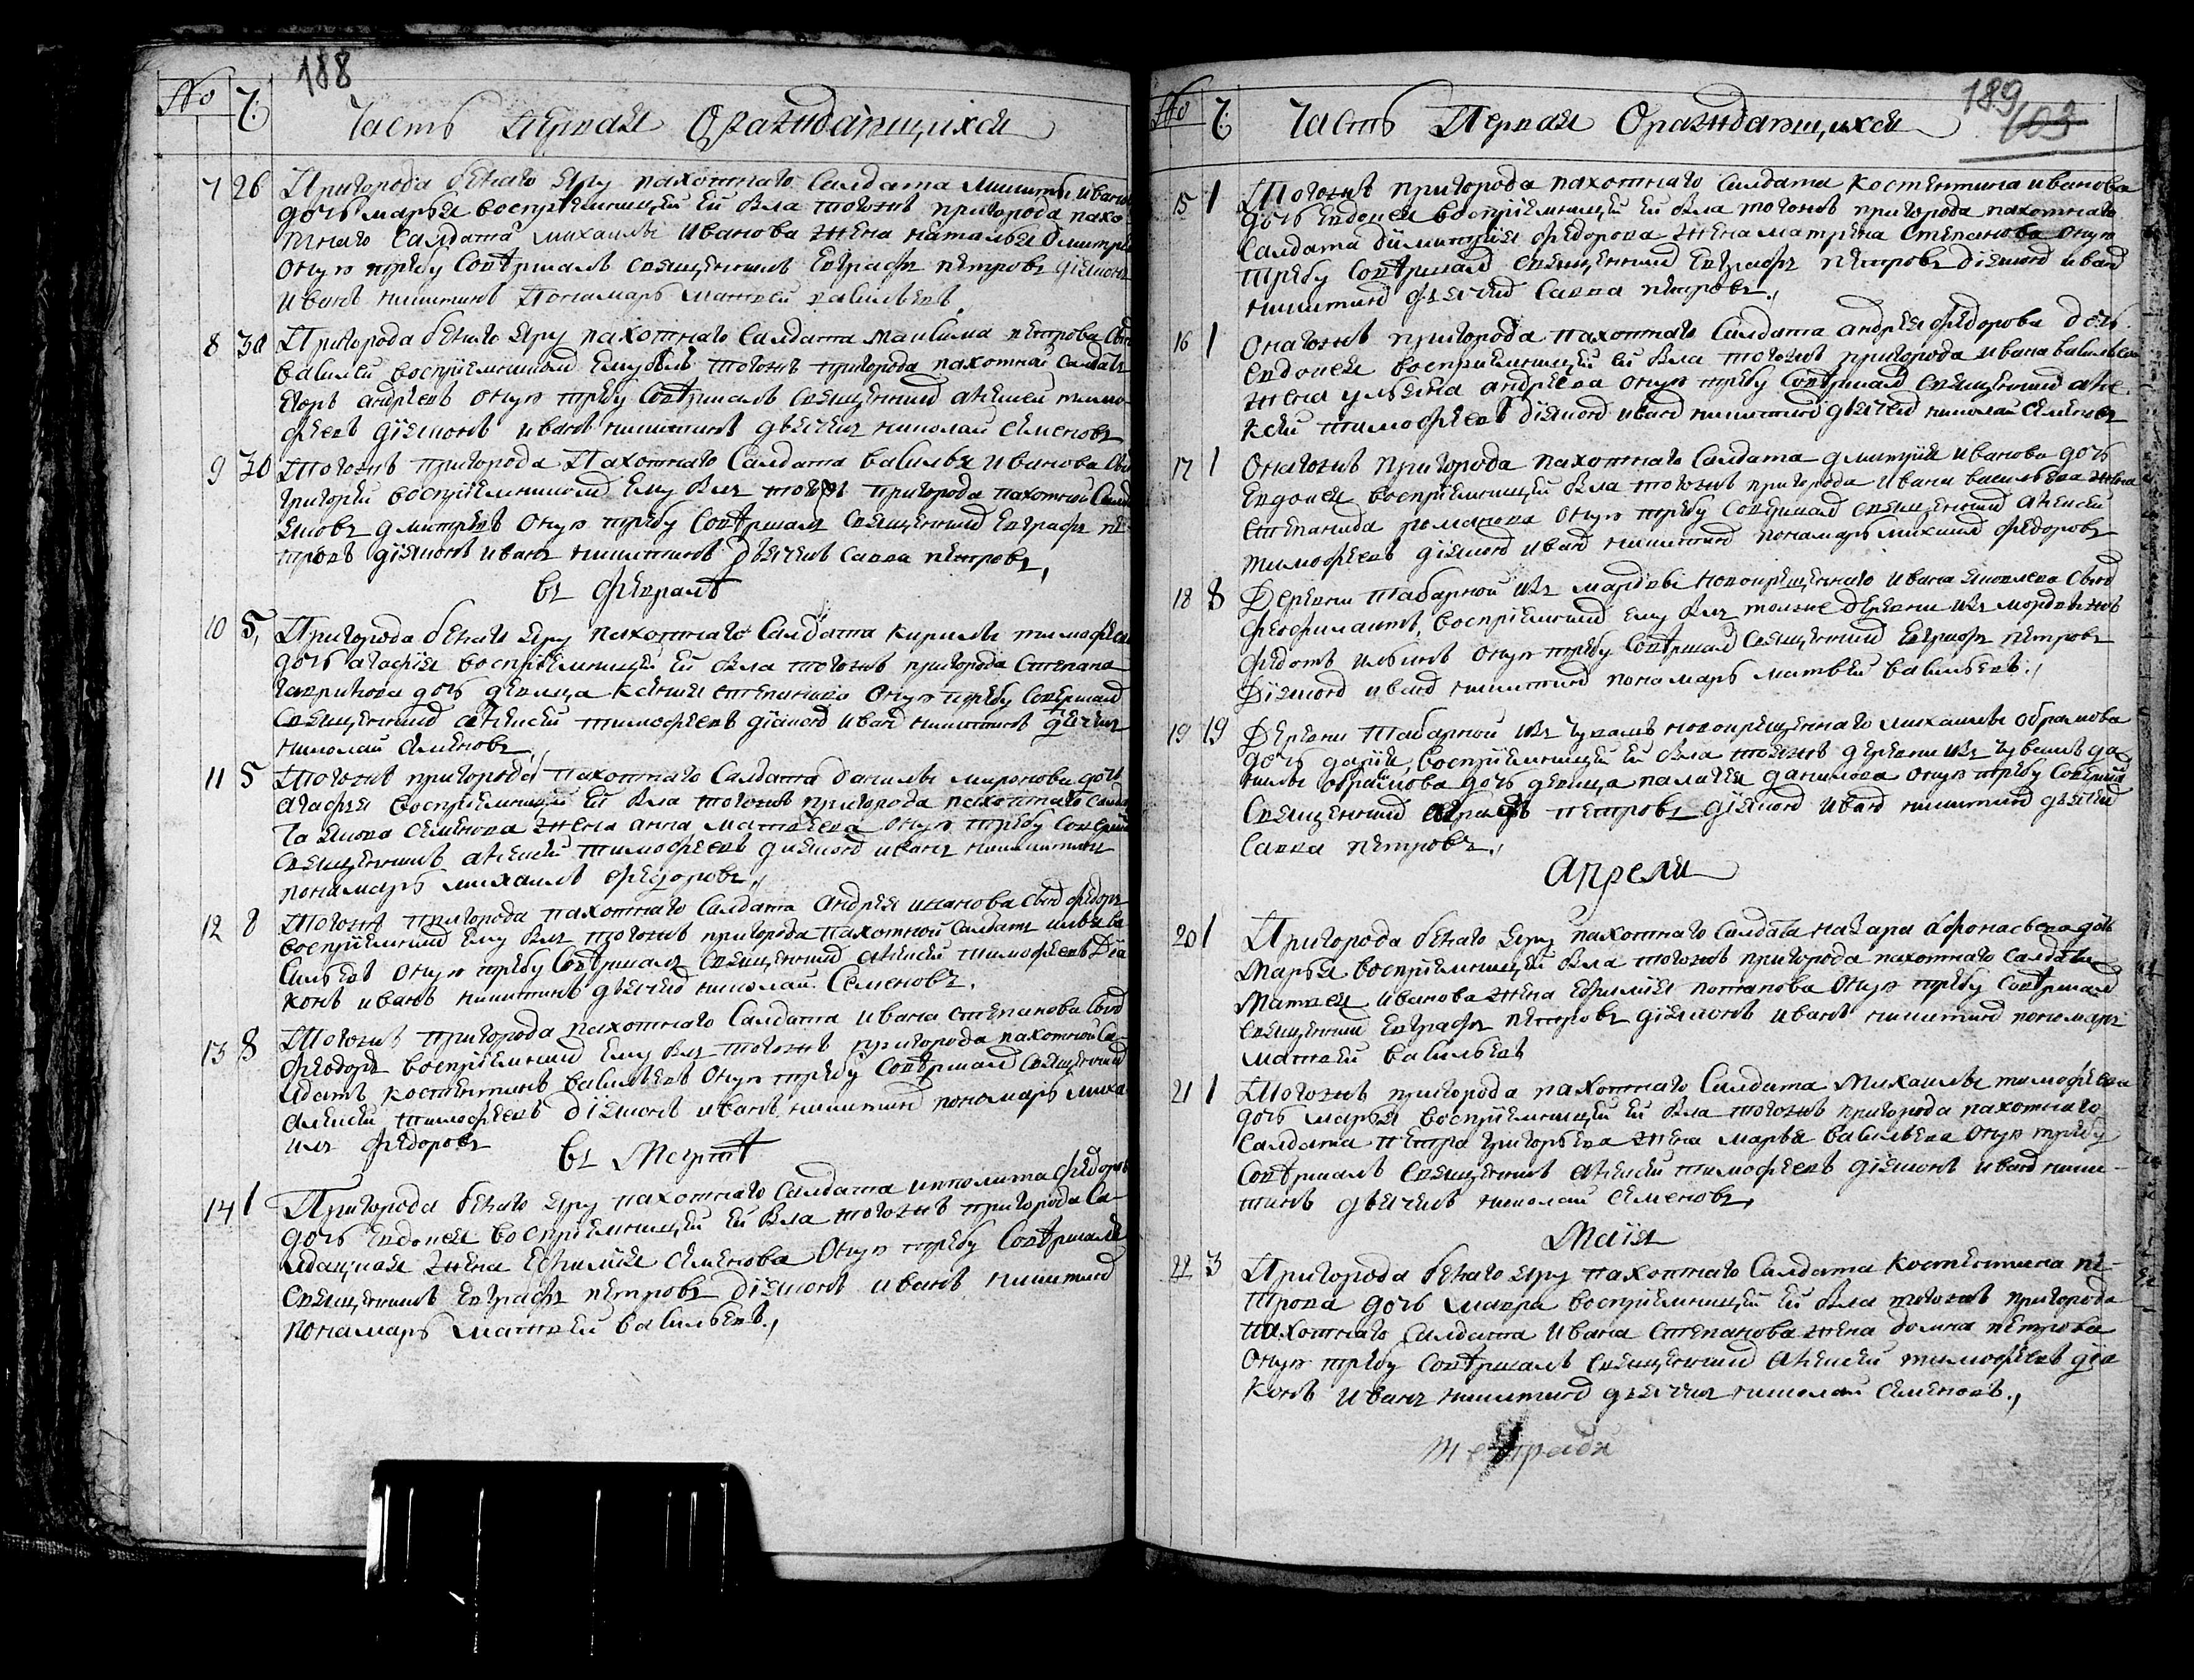 188
№ Ч: Часть первая Ораждающихся
7 26 Пригорода белаго Яру пахотнаго Салдата Никиты иванова
дочь марья восприемницей ей была тогожъ пригорода пахо
тнаго Салдата михаилы иванова жена наталья дмитре
оную требу Совершалъ священникъ Евграфъ петровъ дїяконъ
иванъ никитинъ Пономарь матвей васильевъ
8 30 Пригорода белаго Яру пахотнаго Салдата максима петрова Сынъ
василей восприемникомъ ему былъ тогожъ пригорода пахотной Салдатъ
Егоръ андреевъ оную требу Совершалъ Священникъ алексей тимо
феевъ дїяконъ иванъ никитинъ дьячекъ николай семеновъ
9 30 Тогожъ пригорода Пахотнаго Салдата василья иванова Сынъ
григорей восприемникомъ ему былъ тогожъ пригорода пахотной Салд
яковъ дмитреевъ оную требу Совершалъ Священникъ Евграфъ пе
тровъ дїяконъ иванъ никитинъ дьячекъ савва петровъ,
въ февралѣ
10 5, Пригорода белаго Яру пахотнаго Салдата кирилы тимофеева
дочь агафия восприемницей ей была тогожъ пригорода Степана
гаврилова дочь девица ксения степанова оную требу Совершалъ
Священникъ алексей тимофеевъ дїяконъ иванъ никитинъ дьячекъ
николай семеновъ,
11 5 Тогожъ пригорода пахотнаго Салдата данилы миронова дочь
агафья восприемницей ей была тогожъ пригорода пахотнаго Салда
та якова семенова жена анна матвеева оную требу Совершалъ
Священникъ алексей тимофеевъ дияконъ иванъ никитинъ
пономарь михаилъ федоровъ,
12 8 Тогожъ пригорода пахотнаго Салдата андрея иванова Сынъ федоръ
восприемникъ ему былъ тогожъ пригорода пахотной Салдатъ илья ва
сильевъ оную требу Совершалъ Священникъ алексей тимофеевъ Дїа
конъ иванъ никитинъ дьячекъ николай Семеновъ.
13 8 Тогожъ пригорода пахотнаго Салдата ивана степанова Сынъ
Феодоръ восприемникъ ему былъ тогожъ пригорода пахотной Са-
лдатъ костентинъ васильевъ оную требу Совершалъ Священникъ
алексей тимофеевъ дїяконъ иванъ никитинъ пономарь миха
илъ федоровъ
въ Мартѣ
14 1 Пригорода белаго Яру пахотнаго Салдата ипполита федорова
дочь Евдокея восприемницей ей была тогожъ пригорода Са-
лдацкая жена Ефимия семенова оную требу Совершалъ
Священникъ Евграфъ петровъ дїяконъ иванъ никитинъ
пономарь матвей васильевъ.,
189
103
№ Ч: Часть Первая Ораждающихся
15 1 Тогожъ пригорода пахотнаго Салдата костентина иванова
дочь Евдокея восприемницей ей была тогожъ пригорода пахотнаго
Салдата димитрия федорова жена матрена степанова оную
требу Совершалъ священникъ Евграфъ петровъ дїяконъ иванъ
никитинъ дьячекъ савва петровъ.,
16 1 Онагожъ пригорода пахотнаго Салдата андрея федорова дочь
евдокея восприемницей ей была тогожъ пригорода ивана васильева
жена ульяна андреева оную требу Совершалъ Священникъ але
ксей тимофеевъ дїяконъ иванъ никитинъ дьячекъ николай семеновъ
17 1 Онагожъ пригорода пахотнаго Салдата дмитрия иванова дочь
Евдокея восприемницей была тогожъ пригорода ивана васильева жена
степанида романова оную требу Совершалъ священникъ алексей
тимофеевъ дїяконъ иванъ никитинъ пономарь михаилъ федоровъ
18 8 Деревни табарной изъ мардвы новокрещеннаго ивана яковлева Сынъ
феофилактъ, восприемникъ ему былъ тоежже деревни изъ мордвы
федотъ ильинъ оную требу Совершалъ Священникъ Евграфъ петровъ
Дїяконъ иванъ никитинъ пономарь матвей васильевъ.,
19 19 Деревни Табарной изъ чувашъ новокрещеннаго михаилы обрамова
дочь дария, восприемницей ей была тоежъ деревни изъ чувашъ да
нилы обрамова дочь девица палагея данилова оную требу Совершалъ
Священникъ евграфъ петровъ дїяконъ иванъ никитинъ дьячекъ
Савва петровъ.,
Апрели
20 1 Пригорода белаго Яру пахотнаго Салдата назара афонасьева дочь
Марья восприемницей была тогожъ пригорода пахотнаго Салдата
Матвея иванова жена ефимия потапова оную требу Совершалъ
священникъ Евграфъ петровъ дїяконъ иванъ никитинъ пономарь
матвей васильевъ
21 1 Тогожъ пригорода пахотнаго Салдата Михаилы тимофеева
дочь марья восприемницей ей была тогожъ пригорода пахотнаго
Салдата петра григорьева жена марья васильева оную требу
Совершалъ священникъ алексей тимофеевъ дїяконъ иванъ ники-
тинъ дьячекъ николай семеновъ,
Маїя
22 3 Пригорода белаго Яру пахотнаго Салдата Костентина пе-
трова дочь мавра восприемницей ей была тогожъ пригорода
пахотнаго Салдата ивана степанова жена домна петрова
оную требу Совершалъ священникъ алексей тимофеевъ дїа
конъ иванъ никитинъ дьячекъ николай семеновъ.,